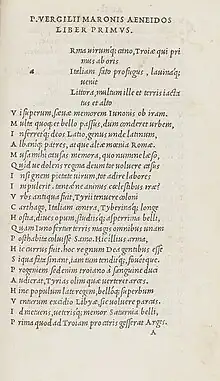 P. VERGILII MARONIS AENEIDOS
LIBER PRIMVS.
Rma uirumq; cano, Troiæ qui pri
mus ab oris
a Italiam fato profugus, lauinaq;
uenit
Littora, multum ille et terris iacta
tus et alto
V i superum, sæuæ memorem Iunonis ob iram.
M ulta quoq; et bello passus, dum conderet urbem,
I nferretq; deos Latio, genus unde latinum,
A lbaniq; patres, atque altæ mœnia Romæ.
M usa mihi causas memora, quo numine læso,
Q uid ue dolens regina deum tot uoluere casus
I nsignem pietate uirum, tot adire labores
I mpulerit. tantæ ne animis cœlestibus iræ?
V rbs antiqua fuit, Tyrii tenuere coloni
C arthago, Italiam contra, Tyberinaq; longe
H ostia, diues opum, studiisq; asperrima belli,
Q uam Iuno fertur terris magis omnibus unam
P osthabita coluisse Samo. Hic illius arma,
H ic currus fuit. hoc regnum Dea gentibus esse
S i qua fata sinant, iam tum tenditq;, fouetque.
P rogeniem sed enim troiano à sanguine duci
A udierat, Tyrias olim quæ uerteret arces.
H inc populum late regem, belloq; superbum
V enturum excidio Libyæ, sic uoluere parcas.
I d metuens, ueterisq; memor Saturnia belli,
P rima quod ad Troiam pro caris gesserat Argis.